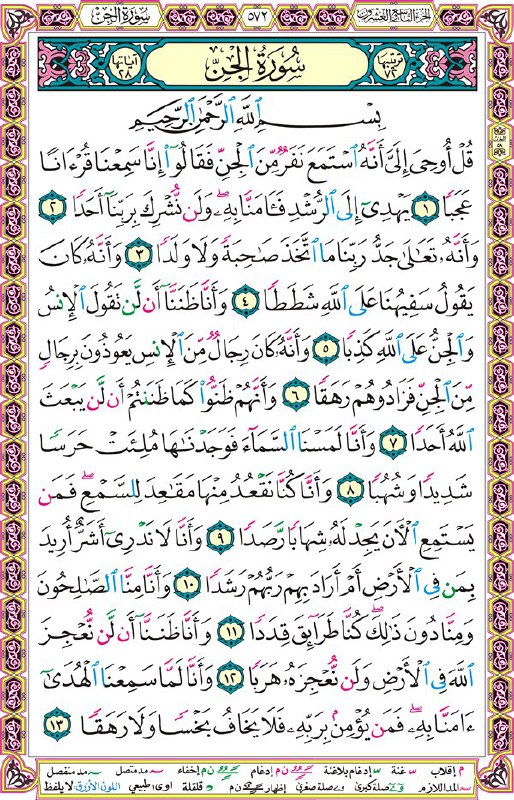 الجزء التاسع والعشرون ٥٧٢ سورة الجن
ترتيبها ٧٢ سُورَةُ الجِنِّ آياتها ٢٨
بِسْمِ ٱللَّهِ ٱلرَّحْمَٰنِ ٱلرَّحِيمِ
قُلْ أُوحِىَ إِلَىَّ أَنَّهُ ٱسْتَمَعَ نَفَرٌ مِّنَ ٱلْجِنِّ فَقَالُوٓا۟ إِنَّا سَمِعْنَا قُرْءَانًا
عَجَبًا ١ يَهْدِىٓ إِلَى ٱلرُّشْدِ فَـَٔامَنَّا بِهِۦ ۖ وَلَن نُّشْرِكَ بِرَبِّنَآ أَحَدًا ٢
وَأَنَّهُۥ تَعَٰلَىٰ جَدُّ رَبِّنَا مَا ٱتَّخَذَ صَٰحِبَةً وَلَا وَلَدًا ٣ وَأَنَّهُۥ كَانَ
يَقُولُ سَفِيهُنَا عَلَى ٱللَّهِ شَطَطًا ٤ وَأَنَّا ظَنَنَّآ أَن لَّن تَقُولَ ٱلْإِنسُ
وَٱلْجِنُّ عَلَى ٱللَّهِ كَذِبًا ٥ وَأَنَّهُۥ كَانَ رِجَالٌ مِّنَ ٱلْإِنسِ يَعُوذُونَ بِرِجَالٍ
مِّنَ ٱلْجِنِّ فَزَادُوهُمْ رَهَقًا ٦ وَأَنَّهُمْ ظَنُّوا۟ كَمَا ظَنَنتُمْ أَن لَّن يَبْعَثَ
ٱللَّهُ أَحَدًا ٧ وَأَنَّا لَمَسْنَا ٱلسَّمَآءَ فَوَجَدْنَٰهَا مُلِئَتْ حَرَسًا
شَدِيدًا وَشُهُبًا ٨ وَأَنَّا كُنَّا نَقْعُدُ مِنْهَا مَقَٰعِدَ لِلسَّمْعِ ۖ فَمَن
يَسْتَمِعِ ٱلْـَٔانَ يَجِدْ لَهُۥ شِهَابًا رَّصَدًا ٩ وَأَنَّا لَا نَدْرِىٓ أَشَرٌّ أُرِيدَ
بِمَن فِى ٱلْأَرْضِ أَمْ أَرَادَ بِهِمْ رَبُّهُمْ رَشَدًا ١٠ وَأَنَّا مِنَّا ٱلصَّٰلِحُونَ
وَمِنَّا دُونَ ذَٰلِكَ ۖ كُنَّا طَرَآئِقَ قِدَدًا ١١ وَأَنَّا ظَنَنَّآ أَن لَّن نُّعْجِزَ
ٱللَّهَ فِى ٱلْأَرْضِ وَلَن نُّعْجِزَهُۥ هَرَبًا ١٢ وَأَنَّا لَمَّا سَمِعْنَا ٱلْهُدَىٰٓ
ءَامَنَّا بِهِۦ ۖ فَمَن يُؤْمِنۢ بِرَبِّهِۦ فَلَا يَخَافُ بَخْسًا وَلَا رَهَقًا ١٣
م إقلاب غنة إدغام بلاغنة ن م إدغام ن م إخفاء مد متصل مد منفصل
المد اللازم صلة كبرى صلة صغرى إظهار ن م قلقلة اوى: طبيعي اللون الأزرق لا يلفظ